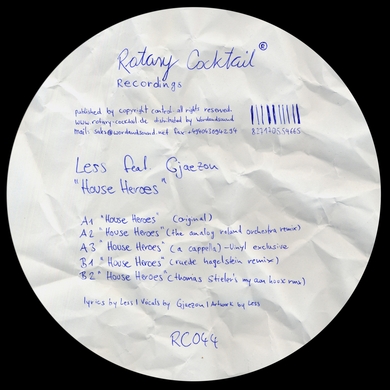 Rotary Cocktail ©
Recordings
published by copyright control. all rights reserved.
www.rotary-cocktail.de distributed by wordandsound
mail: sales@wordandsound.net fax
827170554665
Less feat Gjaezon
"House Heroes"
A1 "House Heroes" (original)
A2 "House Heroes" (the analog roland orchestra remix)
A3 "House Heroes" (a cappella) - Vinyl exclusive
B1 "House Heroes" (ruede hagelstein remix)
B2 "House Heroes" (thomas stieler's my am rmx)
lyrics by Less | Vocals by Gjaezon | Artwork by Less
RC044